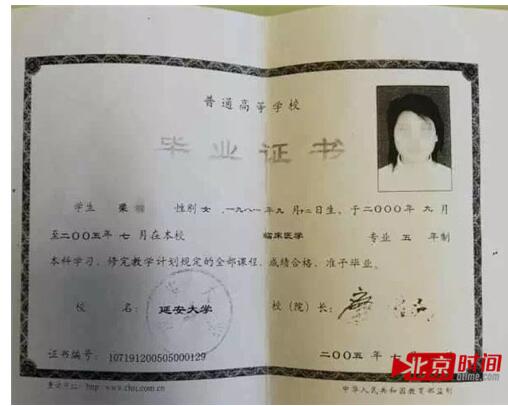 普通高等学校
毕业证书
学生 梁 性别 女 ,一九八一年 九 月 十二日生, 于二〇〇〇年 九 月
至二〇〇五年 七 月在本校 临床医学 专业 五 年制
本科学习, 修完教学计划规定的全部课程, 成绩合格, 准予毕业。
校 名: 延安大学 校(院)长:
证书编号: 107191200505000129 二〇〇五年 七
查询网址: http://www.chsi.com.cn 中华人民共和国教育部监制
北京时间
btime.com